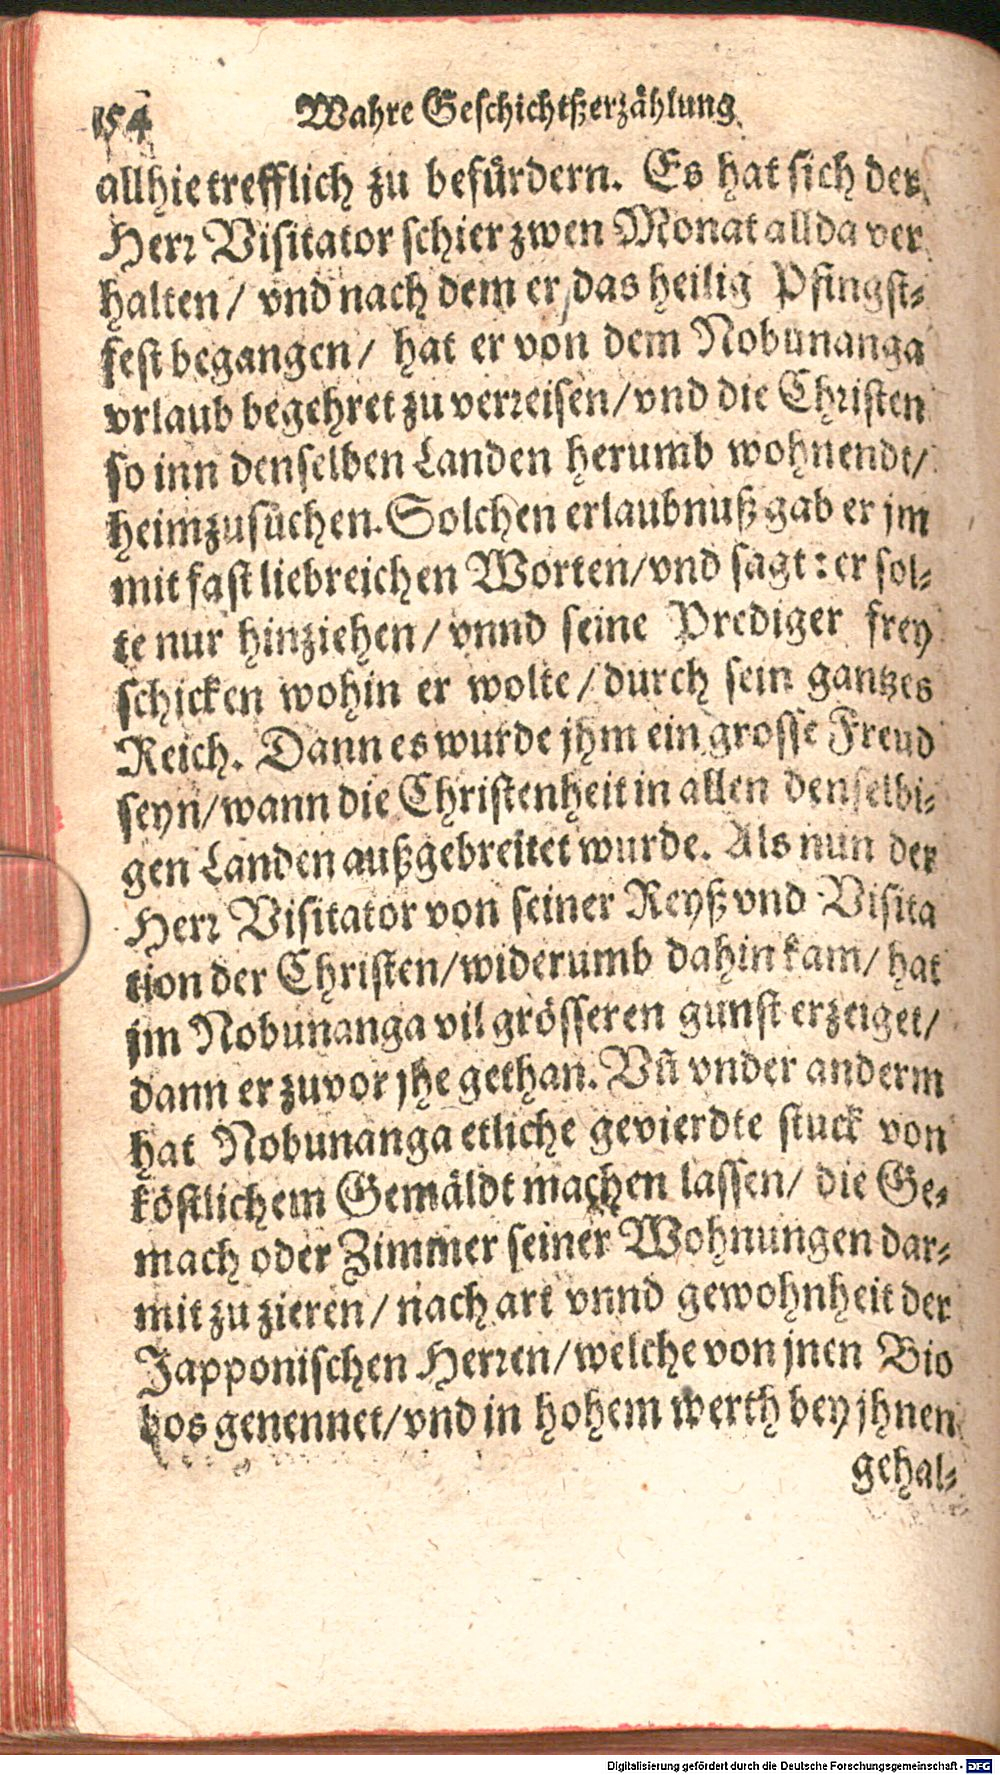 154 Wahre Geschichtßerzählung
allhie trefflich zu befürdern. Es hat sich der
Herr Visitator schier zwen Monat allda ver
halten / vnd nach dem er / das heilig Pfingst-
fest begangen / hat er von dem Nobunanga
vrlaub begehret zu verreisen / vnd die Christen
so inn denselben Landen herumb wohnendt /
heimzusuchen. Solchen erlaubnuß gab er jm
mit fast liebreichen Worten / vnd sagt : er sol-
te nur hinziehen / vnnd seine Prediger frey
schicken wohin er wolte / durch sein gantzes
Reich. Dann es wurde jhm ein grosse Freud
seyn / wann die Christenheit in allen denselbi-
gen Landen außgebreitet wurde. Als nun der
Herr Visitator von seiner Reyß vnd Visita
tion der Christen / widerumb dahin kam / hat
jm Nobunanga vil grösseren gunst erzeiget /
dann er zuvor jhe gethan. Vñ vnder anderm
hat Nobunanga etliche gevierdte stuck von
köstlichem Gemäldt machen lassen / die Ge-
mach oder Zimmer seiner Wohnungen dar-
mit zu zieren / nach art vnnd gewohnheit der
Japponischen Herren / welche von jnen Bio
bos genennet / vnd in hohem werth bey jhnen
gehal-
Digitalisierung gefördert durch die Deutsche Forschungsgemeinschaft - DFG